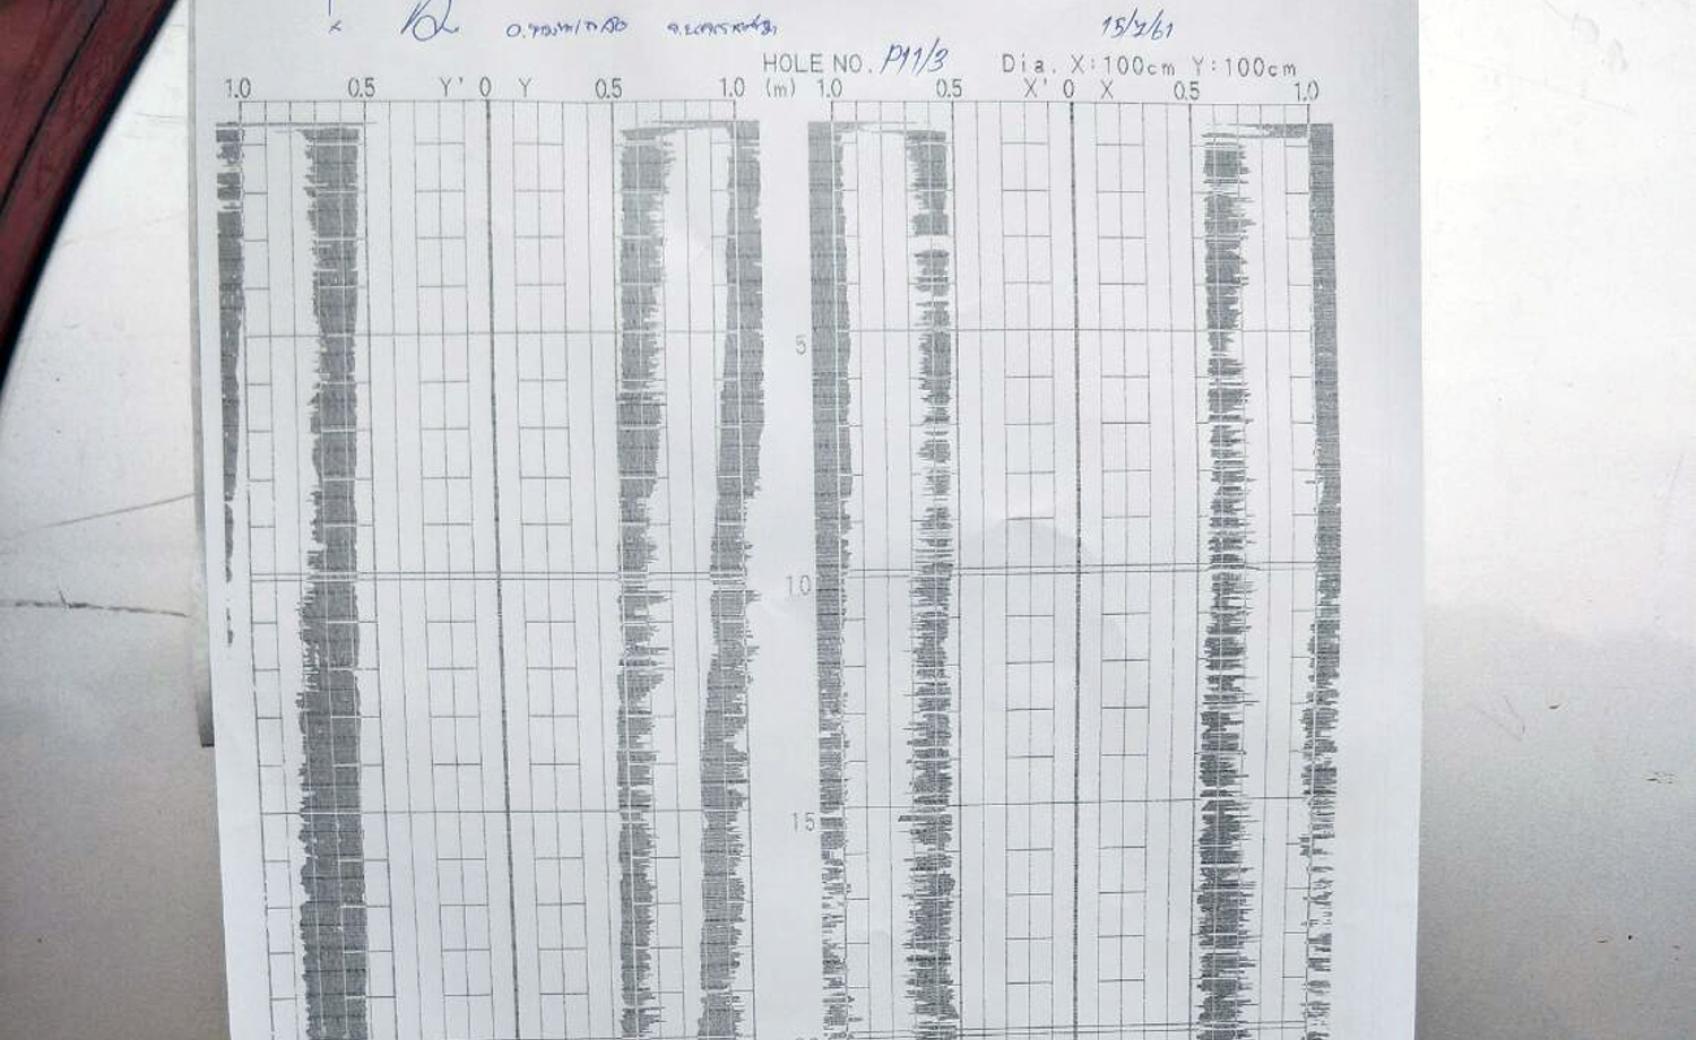 15/7/61
HOLE NO. P11/3 Dia. X:100cm Y:100cm
1.0 0.5 Y' 0 Y 0.5 1.0 (m) 1.0 0.5 X' 0 X 0.5 1.0
5
10
15